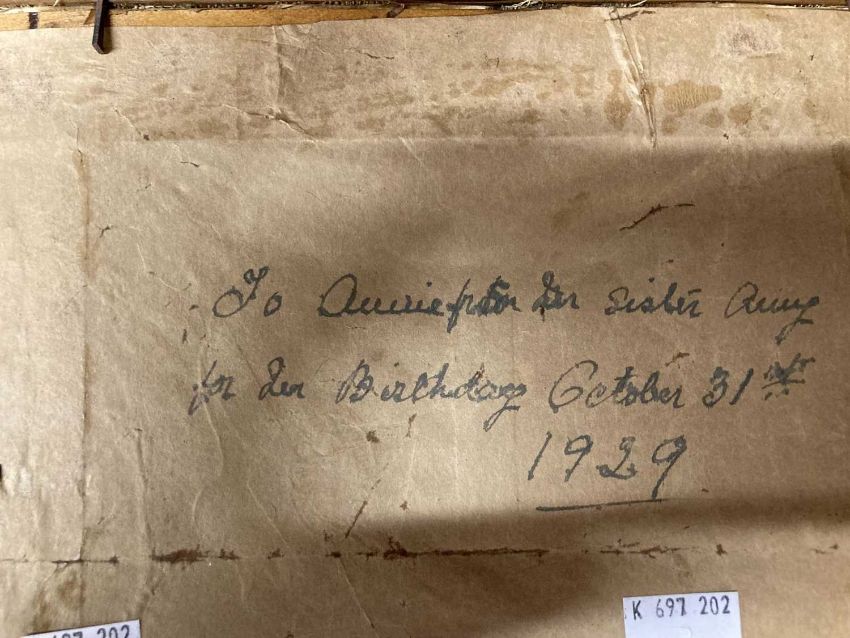 To Annie from her sister Amy
for her Birthday October 31st
1929
K 697 202
697 202